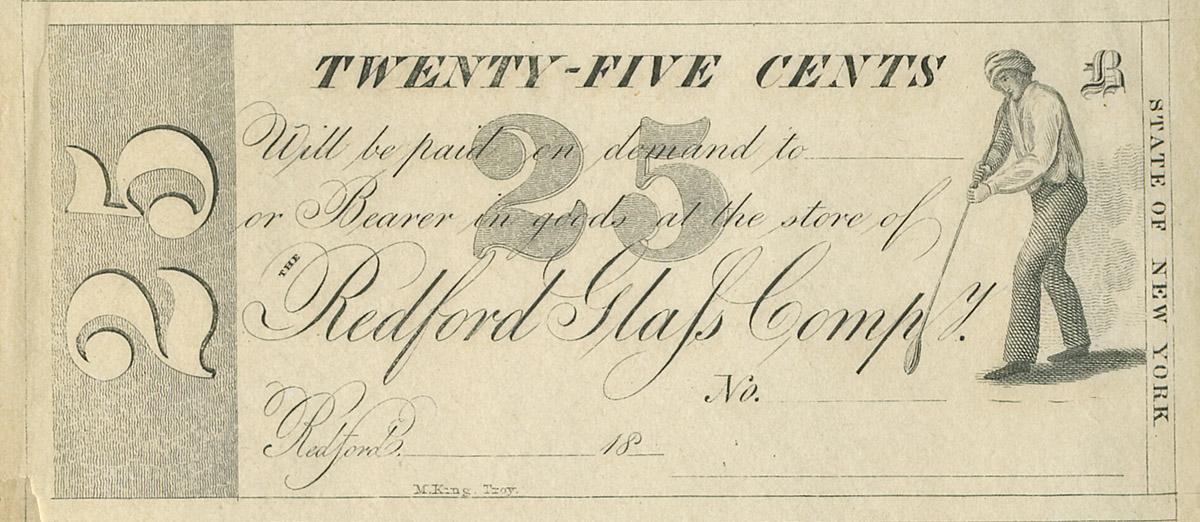 TWENTY-FIVE CENTS
B
25
25
Will be paid on demand to
or Bearer in goods at the store of
THE Redford Glaſs Compy.
No.
Redford 18
M. King. Troy.
STATE OF NEW YORK